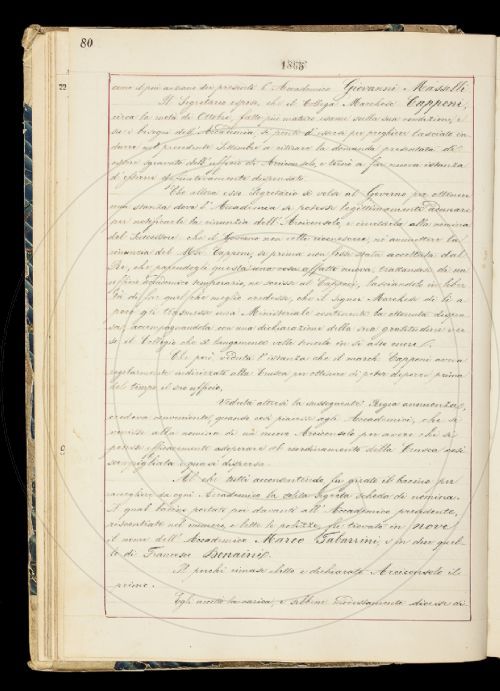 80
1865
22
come il più anziano dei presenti l'Accademico Giovanni Masselli
Il Segretario espose, che il Collega Marchese Capponi,
circa la metà di Ottobre, fatto più maturo esame sulla sua condizione, e
su i bisogni dell'Accademia, si pentì di essersi per preghiere lasciato in
durre nel precedente Settembre a ritirare la domanda presentata di
essere sgravato dell'ufficio di Arciconsolo, e tornò a far nuova istanza
di esserne definitivamente dispensato.
Che allora esso Segretario si volse al Governo per ottenere
una stanza dove l'Accademia si potesse legittimamente adunare
per notificarle la rinunzia dell'Arciconsolo, e invitarla alla nomina
del Successore che il Governo non volle riconoscere, nè ammettere la
rinunzia del M.se Capponi, se prima non fosse stata accettata dal
Re, che parendogli questa una cosa affatto nuova, trattandosi di un
ufficio Accademico temporario, ne scrisse al Capponi, lasciandolo in liber
tà di far quel che meglio credesse, che il Signor Marchese di lì a
poco gli trasmesse una Ministeriale contenente la ottenuta dispen
sa, accompagnandola con una dichiarazione della sua gratitudine ver
so il Collegio che sì lungamente volle tenerlo in sì alto onore.
Che poi veduta l'istanza che il march. Capponi aveva
regolarmente indirizzata alla Crusca per ottenere di poter deporre prima
del tempo il suo ufficio,
Veduta altresì la susseguente Regia annuenza,
credeva conveniente, quando così piacesse agli Accademici, che si
venisse alla nomina di un nuovo Arciconsolo per avere chi si
potesse efficacemente adoperare al riordinamento della Crusca così
scompigliata e quasi dispersa.
Al che tutti acconsentendo fu girato il bacino per
raccogliere da ogni Accademico la solita segreta scheda di nomina.
Il qual bacino portato poi davanti all'Accademico presidente,
riscontrate nel numero, e lette le polizze, fu trovato in nove
il nome dell'Accademico Marco Tabarrini, e in due quel
lo di Francesco Bonaini.
Il perchè rimase eletto e dichiarato Arciconsolo il
primo.
Egli accettò la carica, e sebbene modestamente dicesse di